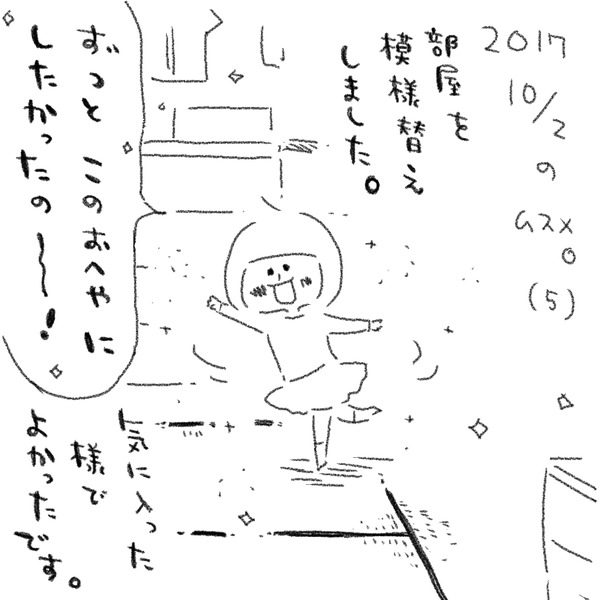 2017
10/2
の
ムスメ。
(5)
部屋を
模様替え
しました。
ずっと このおへやに
したかったの〜〜!
気に入った
様で
よかったです。